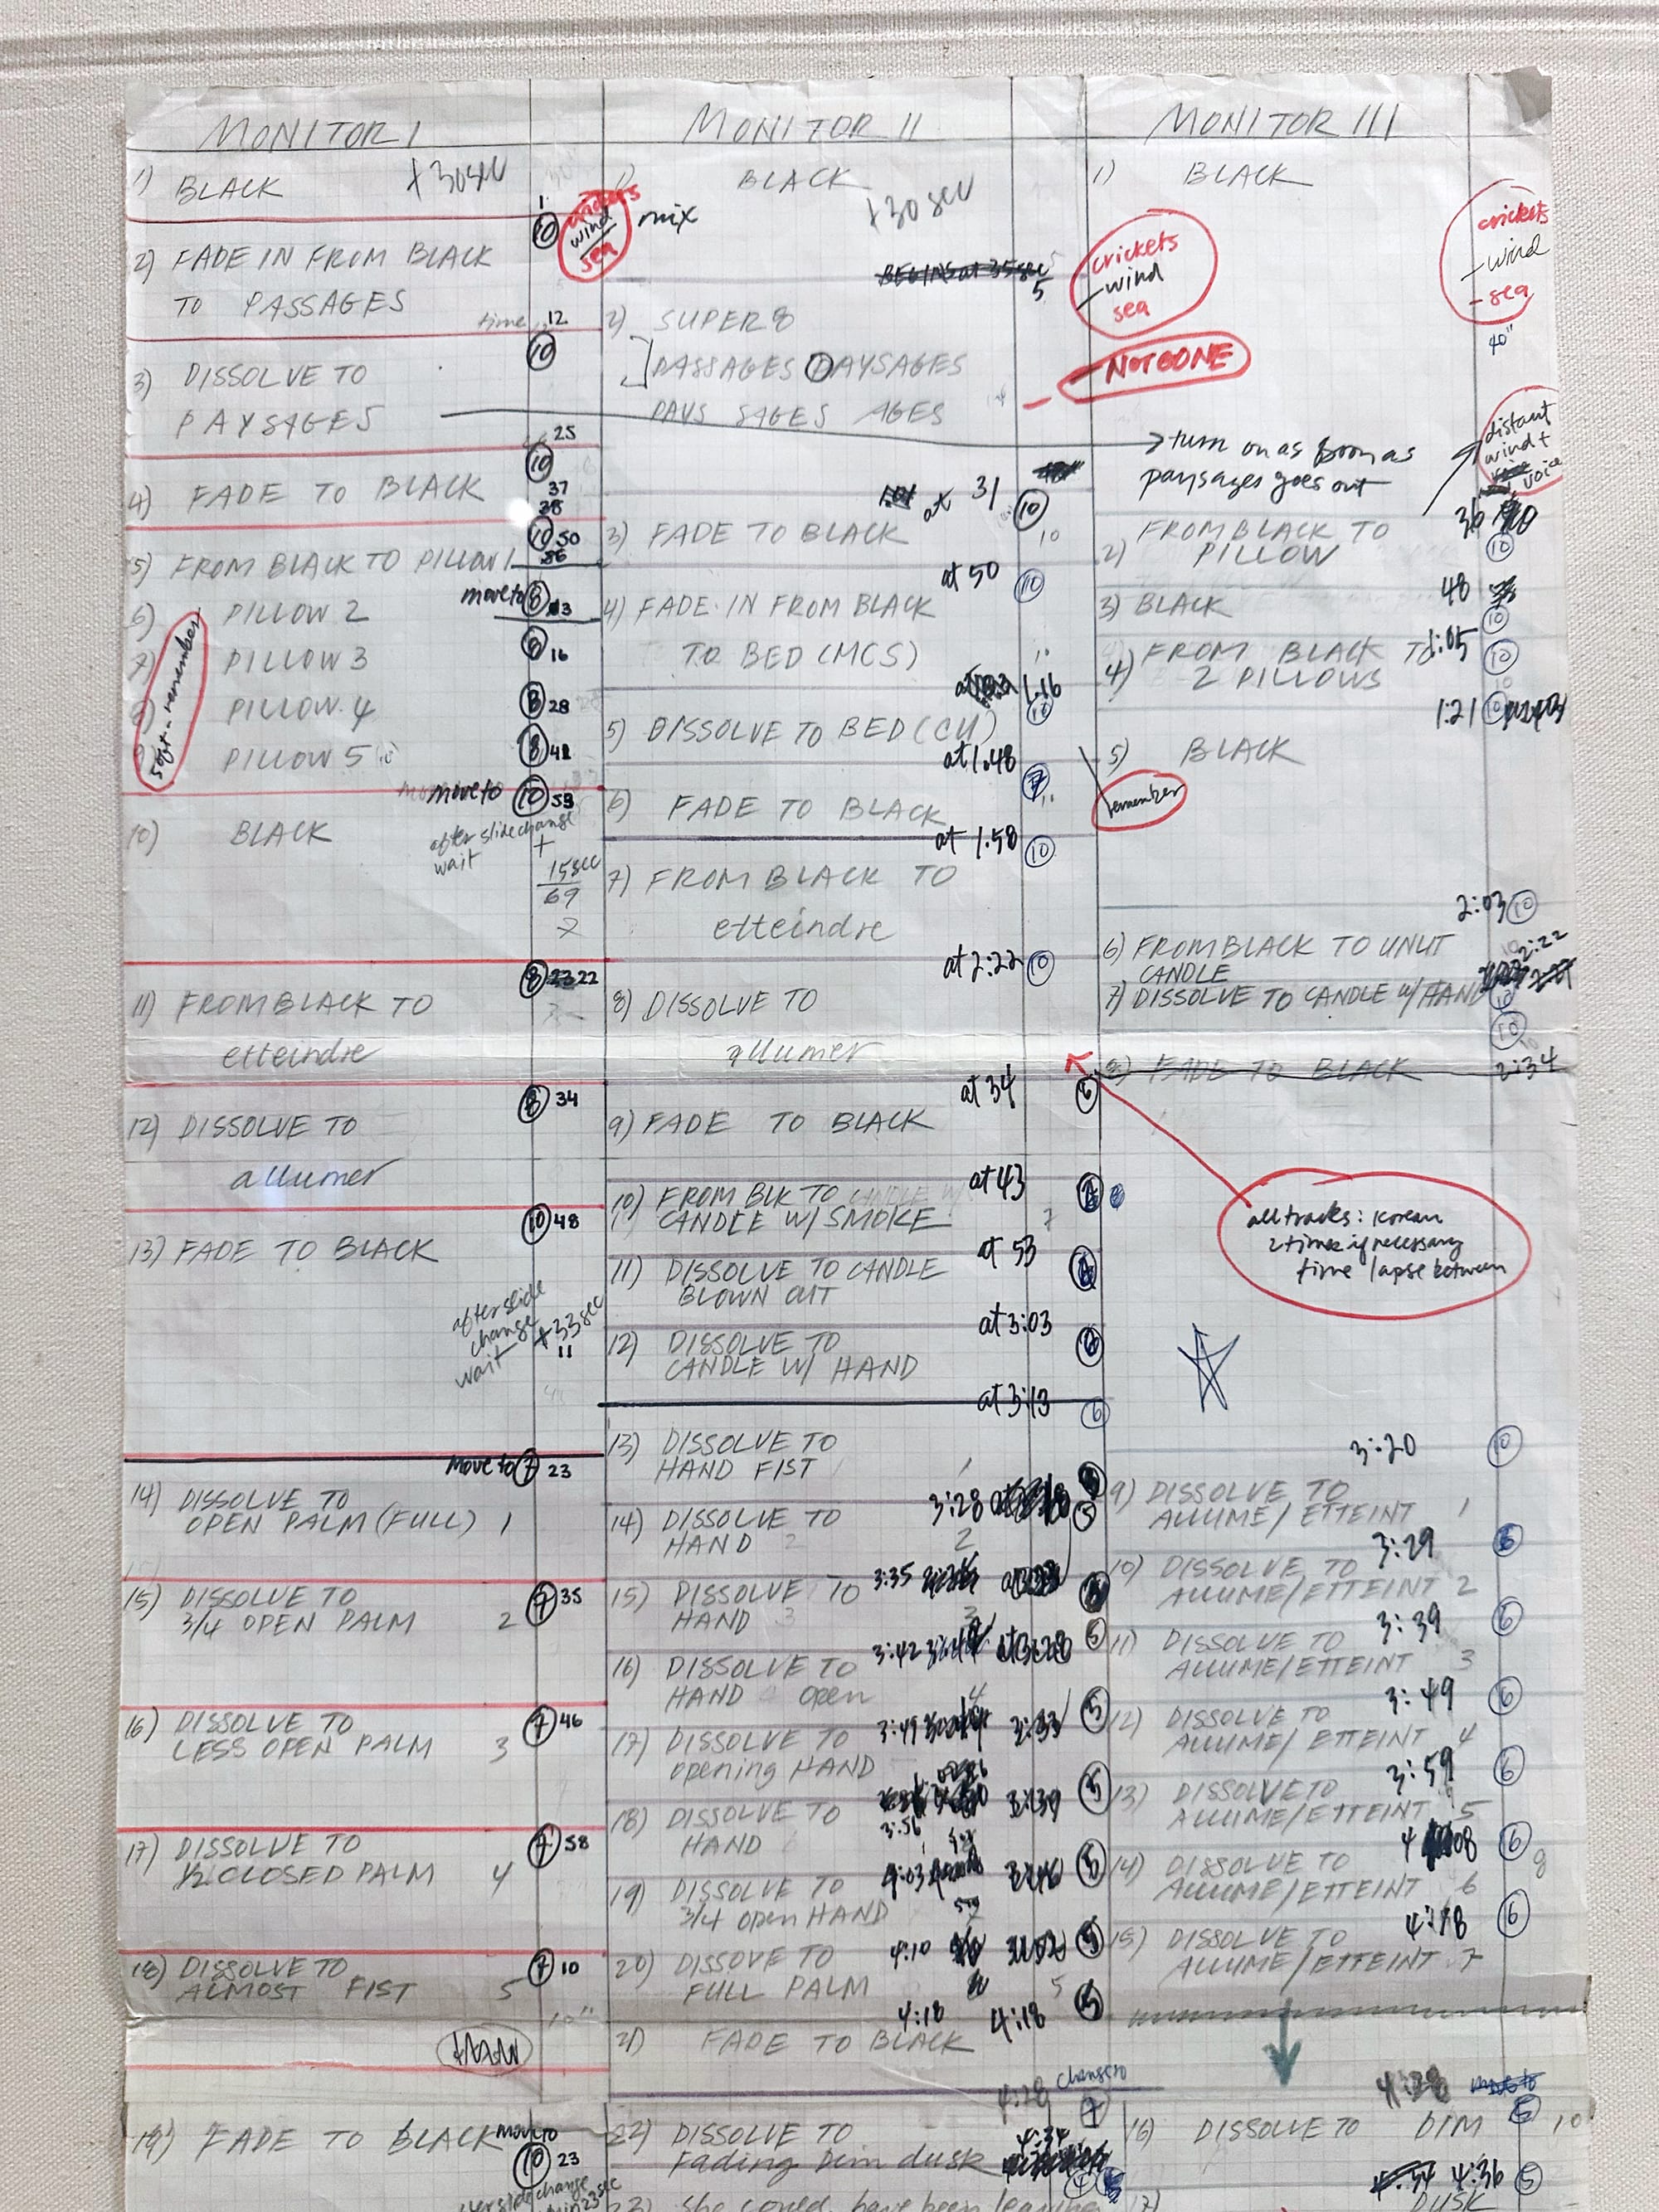 MONITOR I
1) BLACK +30 sec
1
10
2) FADE IN FROM BLACK
TO PASSAGES
time 12
10
3) DISSOLVE TO
PAYSAGES
25
10
4) FADE TO BLACK
37
10 50
5) FROM BLACK TO PILLOW 1
move to 8
6) PILLOW 2
7) PILLOW 3
16
PILLOW 4
8 28
PILLOW 5
8 42
remember
move to 10 53
10) BLACK
after slide change
wait
+
15 sec
69
8 22
11) FROM BLACK TO
etteindre
8 34
12) DISSOLVE TO
allumer
10 48
13) FADE TO BLACK
after slide
change
wait +33 sec
11
move to 7 23
14) DISSOLVE TO
OPEN PALM (FULL) 1
15) DISSOLVE TO
3/4 OPEN PALM 2
7 35
16) DISSOLVE TO
LESS OPEN PALM 3
7 46
17) DISSOLVE TO
1/2 CLOSED PALM 4
7 58
18) DISSOLVE TO
ALMOST FIST 5
7 10
10"
19) FADE TO BLACK
move to
10 23
slide change
23 sec
MONITOR II
1) BLACK
+30 sec
crickets
wind
sea
mix
BEGINS at 35 sec
5
2) SUPER 8
PASSAGES PAYSAGES
PAYS SAGES AGES
at 31
10
3) FADE TO BLACK
10
at 50
10
4) FADE IN FROM BLACK
TO BED (MCS)
1.16
10
5) DISSOLVE TO BED (CU)
at 1.48
7
6) FADE TO BLACK
at 1.58
10
7) FROM BLACK TO
etteindre
at 2:22 10
8) DISSOLVE TO
allumer
at 34
6
9) FADE TO BLACK
at 43
10) FROM BLK TO
CANDLE W/ SMOKE
at 53
11) DISSOLVE TO CANDLE
BLOWN OUT
at 3:03
12) DISSOLVE TO
CANDLE W/ HAND
at 3:13
6
13) DISSOLVE TO
HAND FIST 1
3:28
5
14) DISSOLVE TO
HAND 2
3:35
15) DISSOLVE TO
HAND 3
3:42
5
16) DISSOLVE TO
HAND open 4
3:49 3:33
5
17) DISSOLVE TO
opening HAND
3:39
5
3:56
18) DISSOLVE TO
HAND
4:03 3:46
5
19) DISSOLVE TO
3/4 open HAND
4:10
5
20) DISSOVE TO
FULL PALM 5
4:18 4:18
5
21) FADE TO BLACK
4:28 change to
7
22) DISSOLVE TO
Fading Dim dusk
4:34
23) she could have been leaving
MONITOR III
1) BLACK
crickets
- wind
sea
crickets
- wind
- sea
40"
NOT DONE
distant
wind +
voice
→ turn on as soon as
paysages goes out
36
10
2) FROM BLACK TO
PILLOW
48
10
3) BLACK
1:05
10
4) FROM BLACK TO
2 PILLOWS
1:21 10
5) BLACK
remember
2:03 10
6) FROM BLACK TO UNLIT
CANDLE
2:22
7) DISSOLVE TO CANDLE W/ HAND
10
8) FADE TO BLACK
2:34
all tracks: Korean
2 times if necessary
time lapse between
3:20 10
9) DISSOLVE TO
ALLUME/ ETTEINT 1
3:29 6
10) DISSOLVE TO
ALLUME/ETTEINT 2
3:39 6
11) DISSOLVE TO
ALLUME/ETTEINT 3
3:49 6
12) DISSOLVE TO
ALLUME/ ETTEINT 4
3:59 6
13) DISSOLVE TO
ALLUME/ETTEINT 5
4 08 6
14) DISSOLVE TO
ALLUME/ETTEINT 6
4:18 6
15) DISSOLVE TO
ALLUME/ETTEINT 7
4:28
5
16) DISSOLVE TO DIM 10
4:36 5
17) DUSK